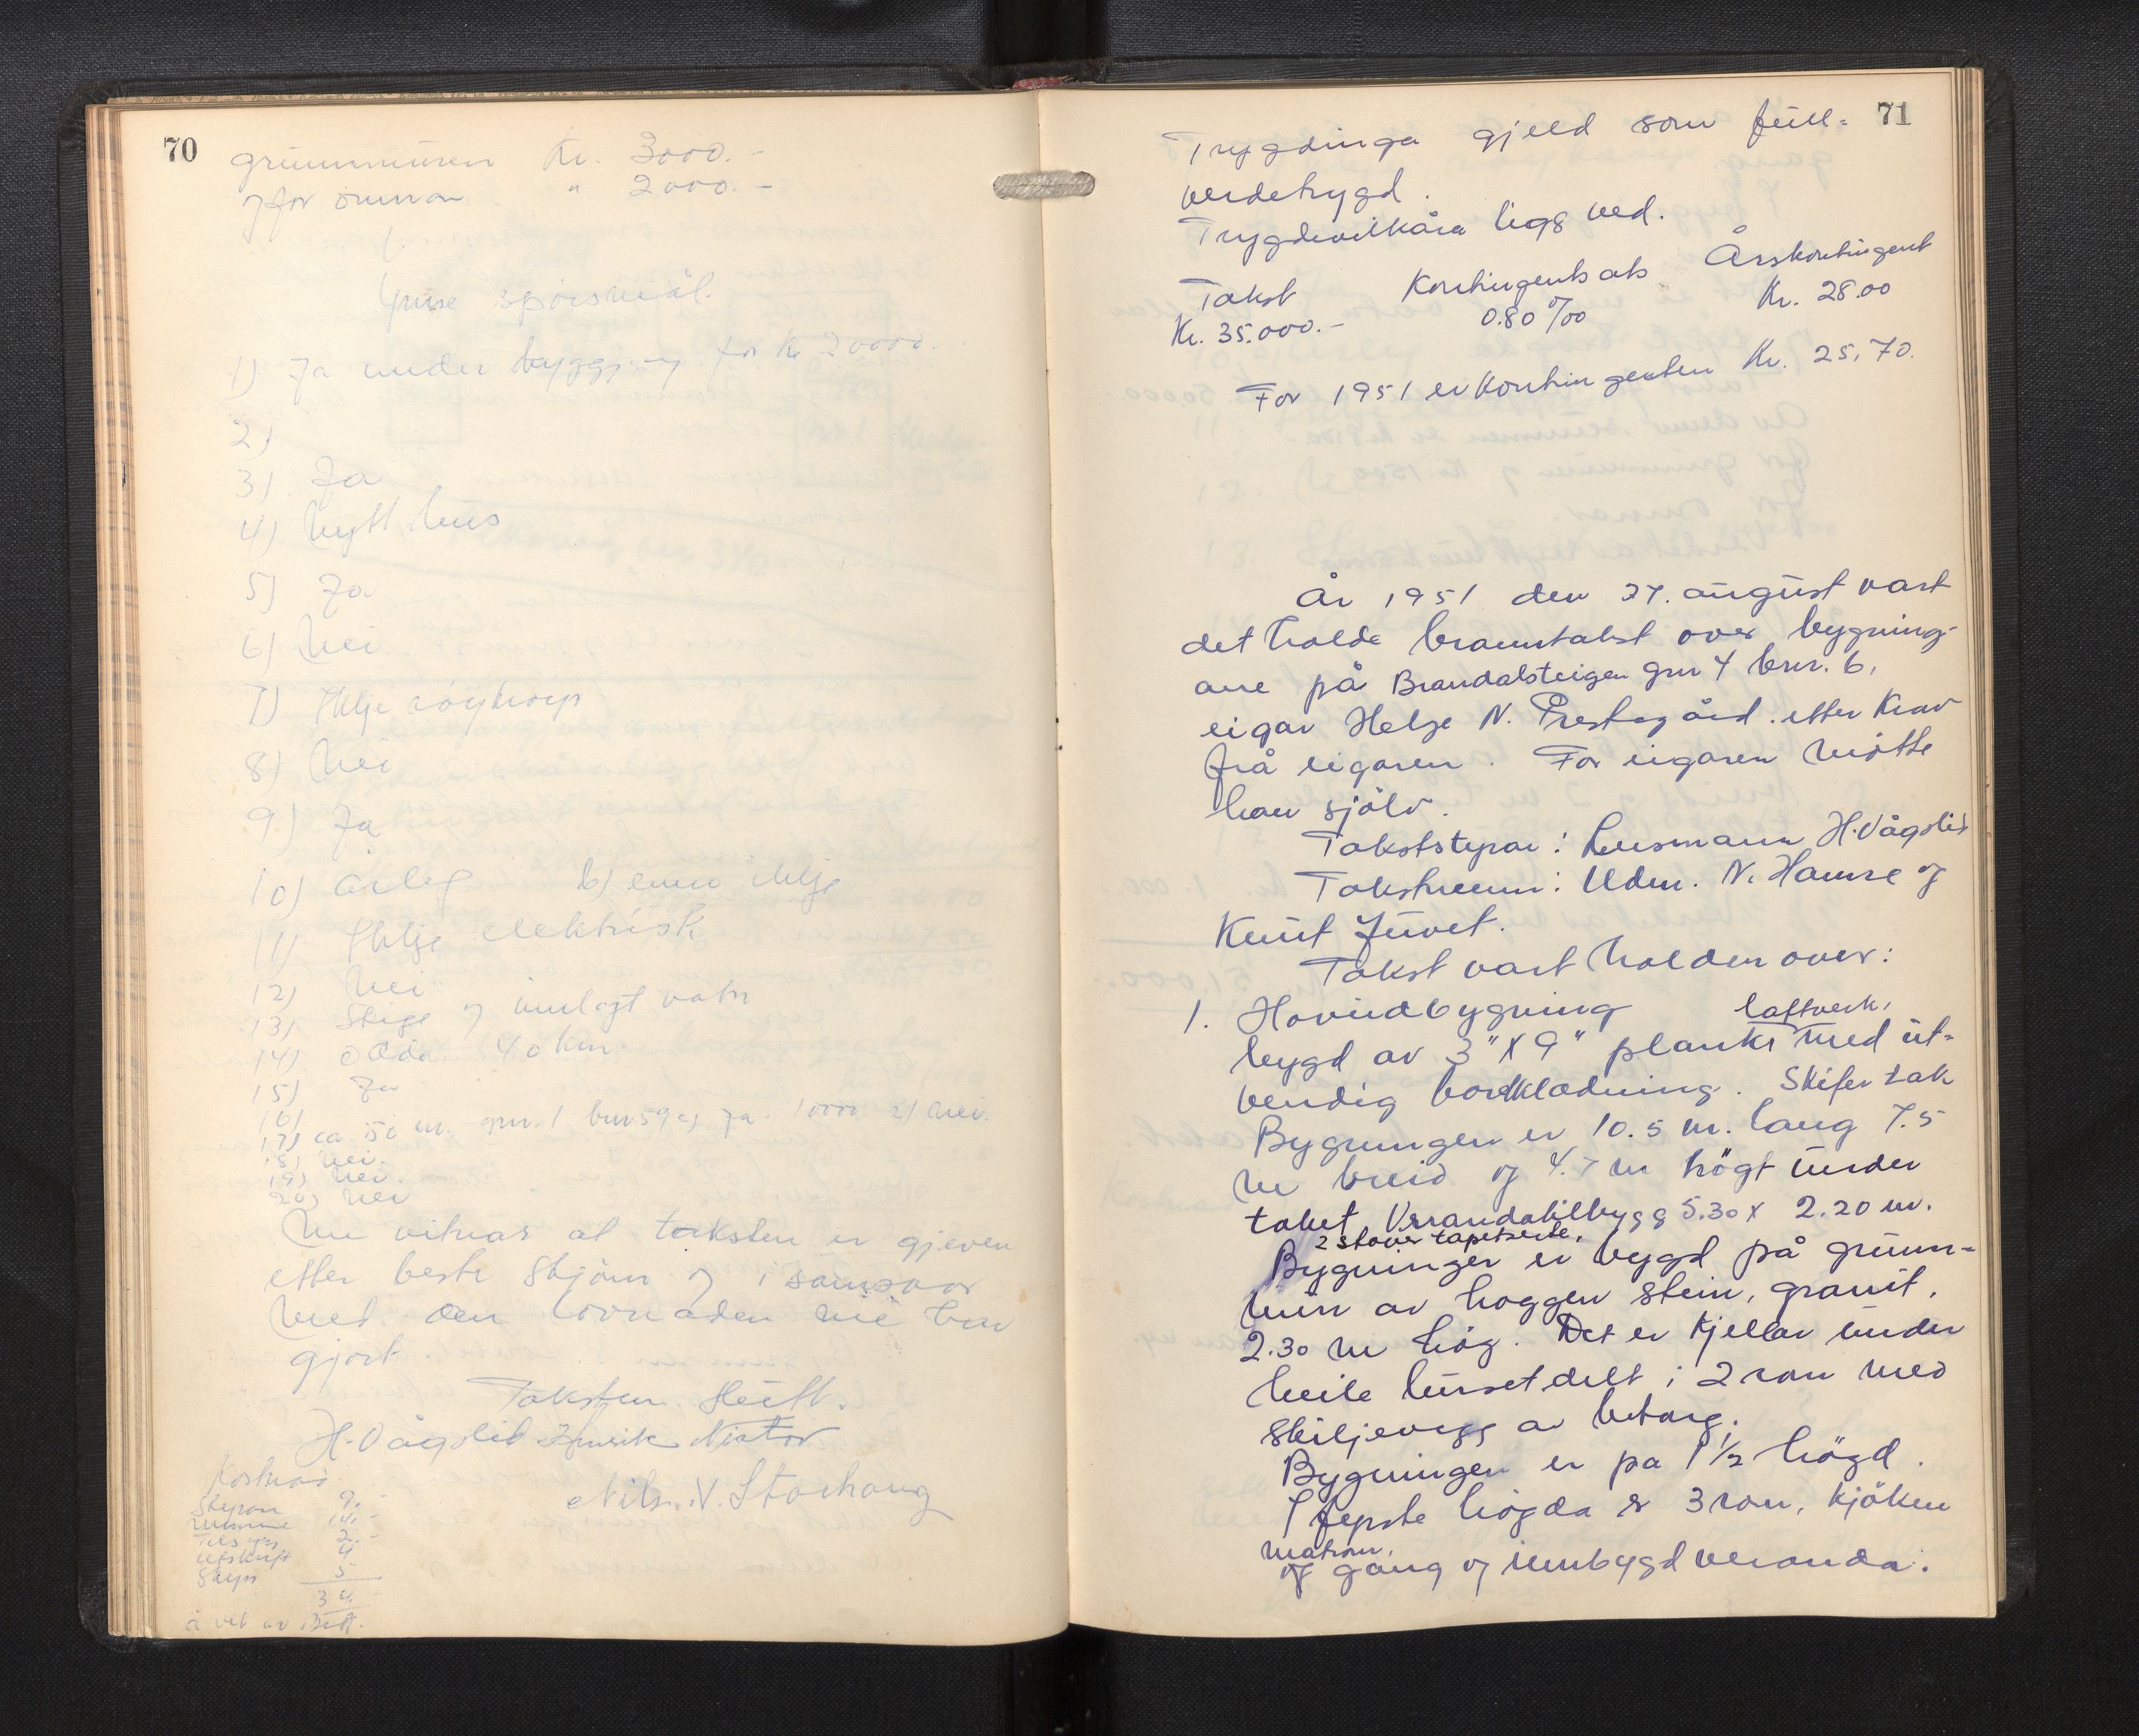 70
grunnmuren Kr. 3000.-
og for omnar " 2000.-
Ymse spørsmål.
1) Ja under bygging for Kr 20000.
2)
3) Ja
4) Nytt hus
5) Ja
6) Nei
7) Ikkje røykorp
8) Nei
9) Ja
10) årleg b) enno ikkje
11) Ikkje elektrisk
12) Nei
13) Stige og innlagt vatn
14) Odda 40 km.
15) Ja
16)
17) ca 50 m. gnr. 1 bnr 59 a) Ja. 1000 2) Nei.
18) Nei.
19) Nei.
20) Nei
Me vitnar at taksten er gjeven
etter beste skjøn og i samsvar
med den lovnaden me har
gjort.
Taksten slutt.
H. Vågslid Nistov
Nils. V. Storhaug
Kostnad
Styrar 9.-
menn 14.-
2.-
Utskrift 4
Skyss 5
34.-
71
Trygdinga gjeld som full-
verdetrygd.
Trygdevilkåra ligg ved.
Takst Kontingentsats Årskontingent
Kr. 35.000.- 0.80 ‰ Kr. 28.00
For 1951 er kontingenten Kr. 25,70.
År 1951 den 27. august vart
det halde branntakst over bygning-
ane på Brandalsteigen gnr 4 bnr. 6,
eigar Helge N. Prestegård. etter krav
frå eigaren. For eigaren møtte
han sjølv.
Takststyrar: Lensmann H. Vågslid
Takstmenn: Udm. N. Hamre og
Knut Juvet.
Takst vart halden over:
1. Hovudbygning laftverk,
bygd av 3" x 9" plankr med ut-
vendig bordklædning. Skifer tak
Bygningen er 10.5 m. lang 7.5
m breid og 4.7 m høgt under
taket, Verandatilbygg 5.30 x 2.20 m.
2 stover tapetserte,
Bygningen er bygd på grunn-
mur av hoggen stein, granit,
2.30 m høg. Det er kjellar under
heile huset delt i 2 rom med
skiljevegg av betong.
Bygningen er på 1 1/2 høgd.
I fyrste høgda er 3 rom, kjøken
matrom,
og gang og innbygd veranda.